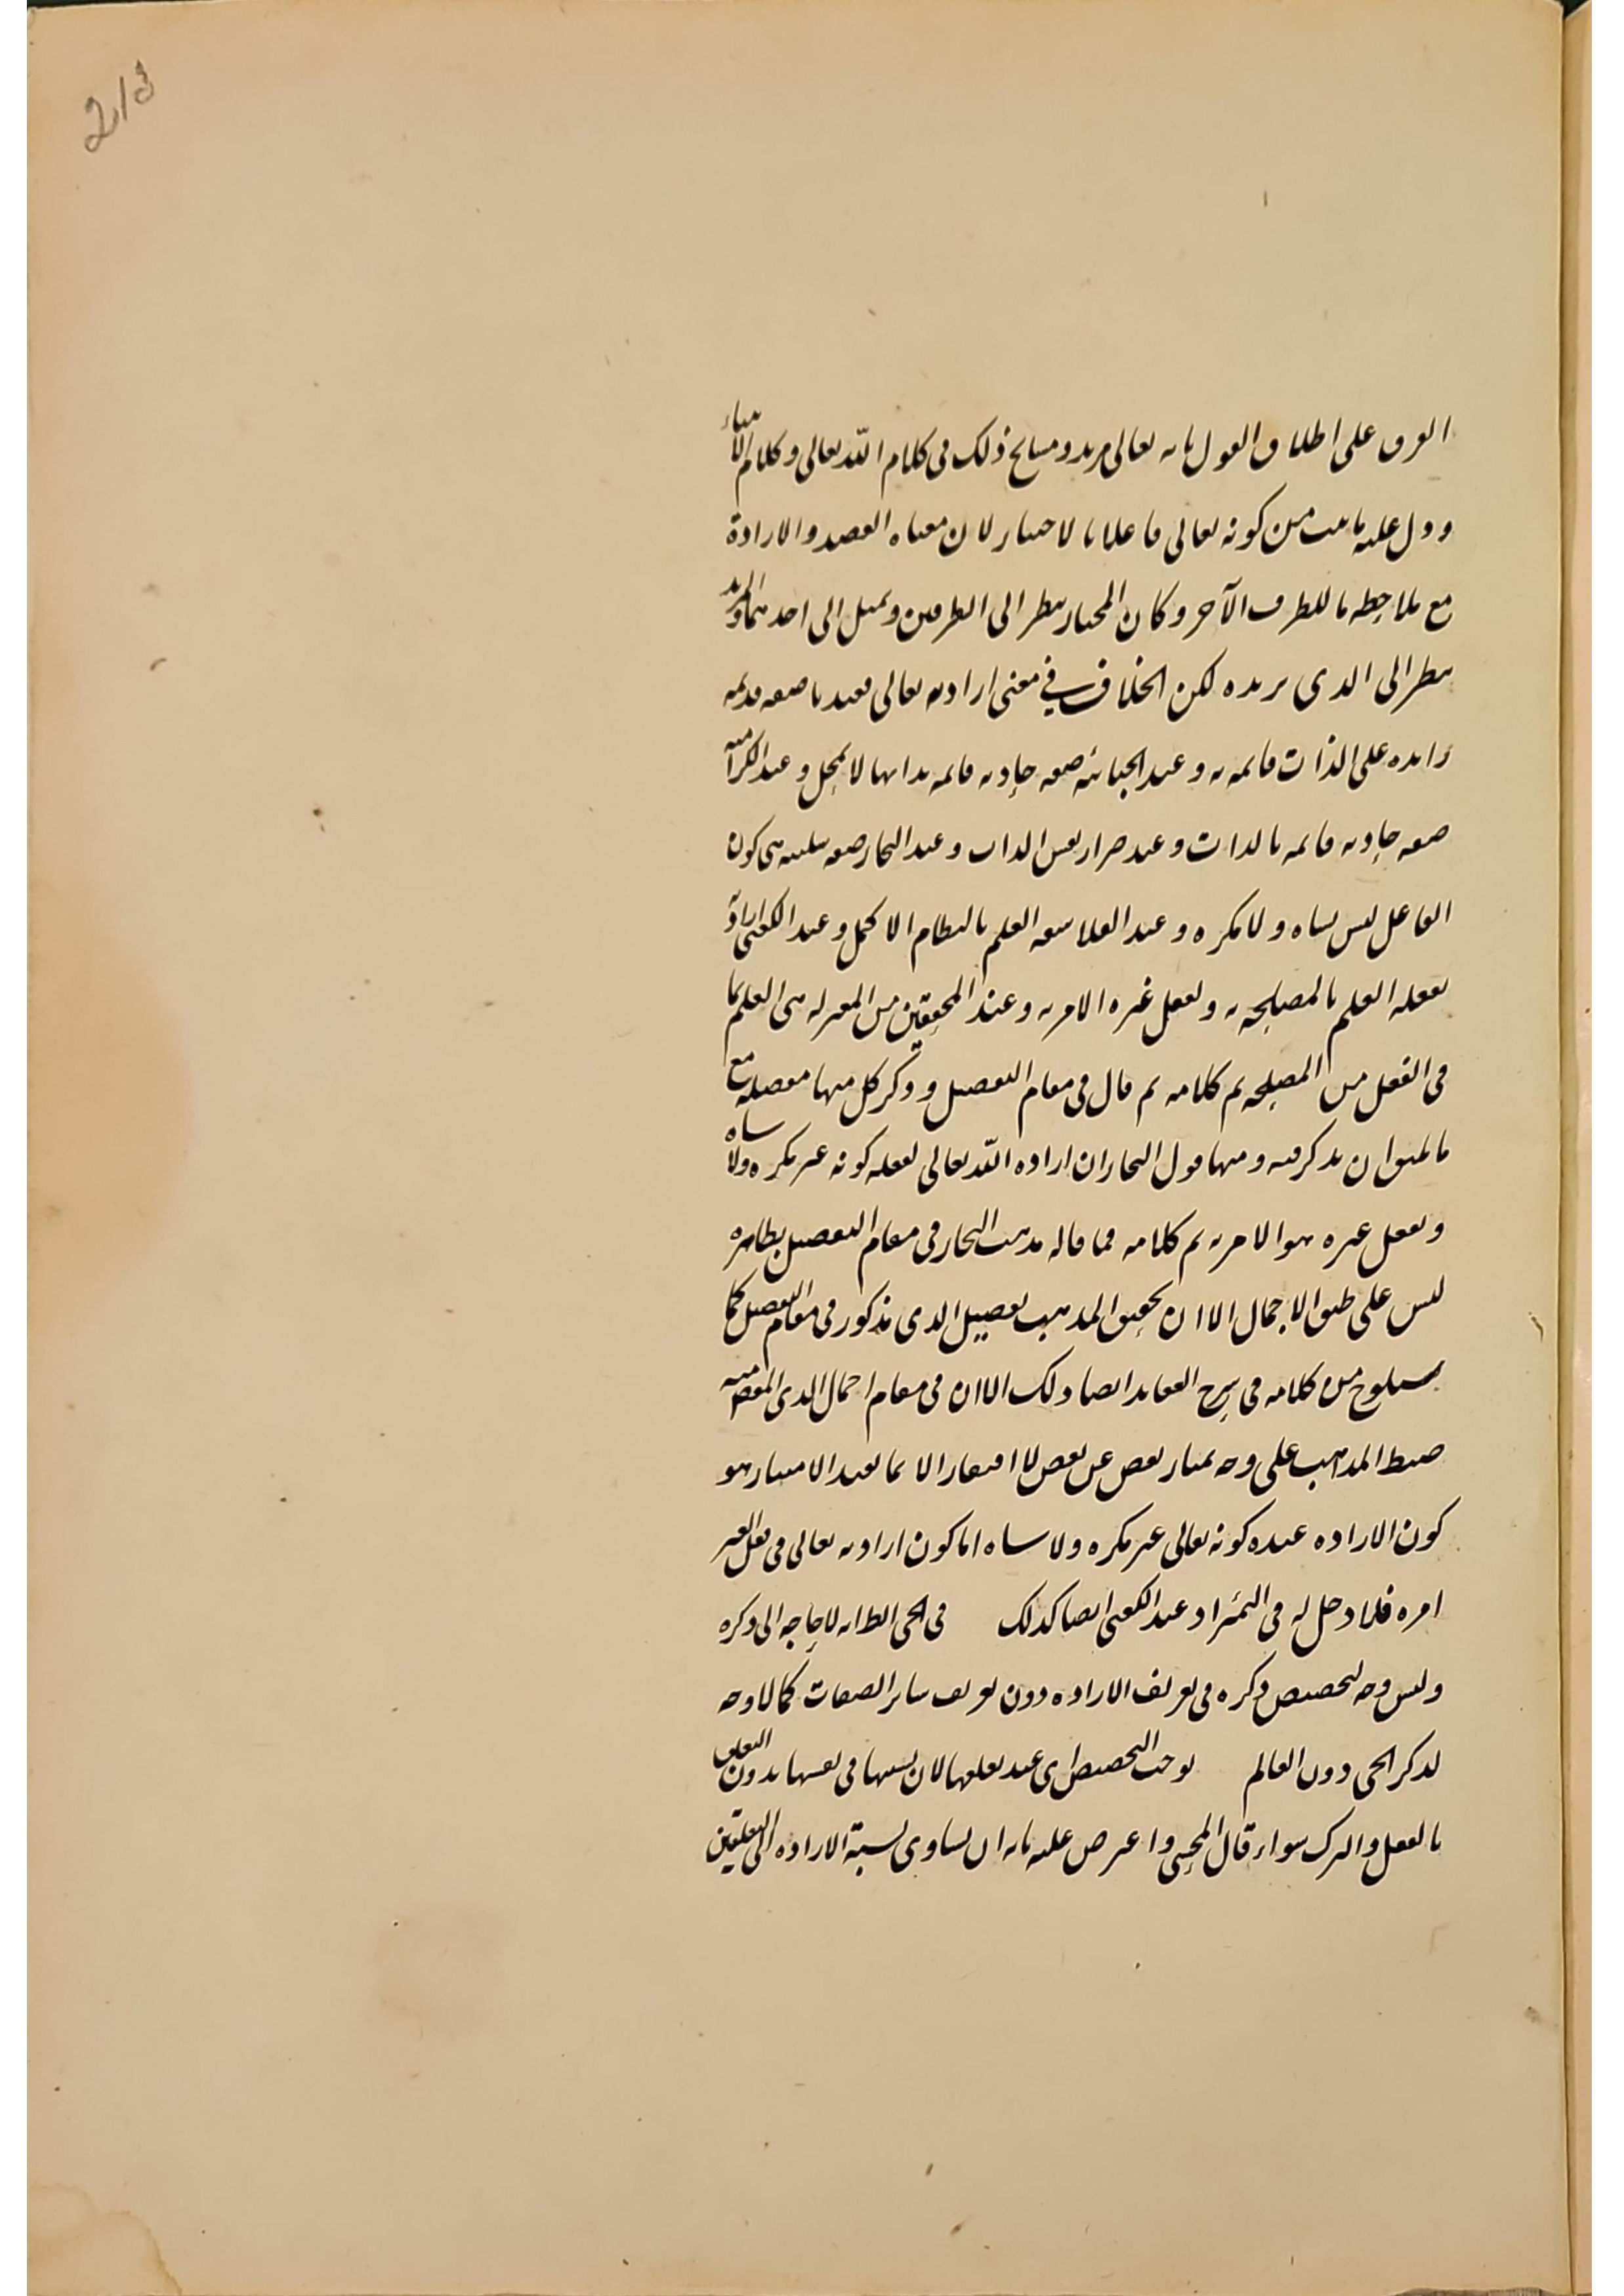 2/3
الفرق على اطلاق القول بانه تعالى مريد و شايع ذلك في كلام الله تعالى و كلام الانبياء
و دل عليه ما ثبت من كونه تعالى فاعلا بالاختيار لان معناه القصد و الارادة
مع ملاحظة ما للطرف الآخر و كان المختار ينظر الى الطرفين و يميل الى احدهما و المريد
ينظر الى الذى يريده لكن الخلاف في معنى ارادته تعالى فعندنا صفه قديمه
زايده على الذات قائمه به و عند الجبائيه صفه حادثه قائمه بذاتها لا بمحل و عند الكراميه
صفه حادثه قائمه بالذات و عند ضرار نفس الذات و عند النجار صفه سلبيه هى كون
الفاعل ليس بساه و لا مكره و عند الفلاسفه العلم بالنظام الاكمل و عند الكعبى ارادته
لفعله العلم بالمصلحه به و لفعل غيره الامر به و عند المحققين من المعتزله هى العلم بما
فى الفعل من المصلحه تم كلامه ثم قال فى مقام التفصيل و ذكر كل منها مفصله مع
ما يليق ان يذكر فيه و منها قول النجار ان اراده الله تعالى لفعله كونه غير مكره و لا ساه
و لفعل غيره هو الامر به تم كلامه فما قاله مذهب النجار فى مقام التفصيل بظاهره
ليس على طبق الاجمال الا ان تحقيق المذهب تفصيل الذى مذكور فى مقام التفصيل كما
سيلوح من كلامه فى شرح العقايد ايضا ذلك الا ان فى مقام اجمال الذى المقص منه
ضبط المذاهب على وجه يمتاز بعض عن بعض لا افتقار الا بما يفيد الامتياز هو
كون الاراده عنده كونه تعالى غير مكره و لا ساه اما كون ارادته تعالى فى فعل الغير
امره فلا دخل له فى التميز او عند الكعبى ايضا كذلك فى الحى الظ انه لا حاجه الى ذكره
و ليس وجه لتخصيص ذكره فى تعريف الاراده دون تعريف ساير الصفات كما لا وجه
لذكر الحى دون العالم يوجب التخصيص اى عند تعلقها لان نسبتها فى نفسها بدون التعلق
بالفعل و الترك سواء قال المحشى و اعترض عليه بانه ان تساوى نسبة الاراده الى التعلقين